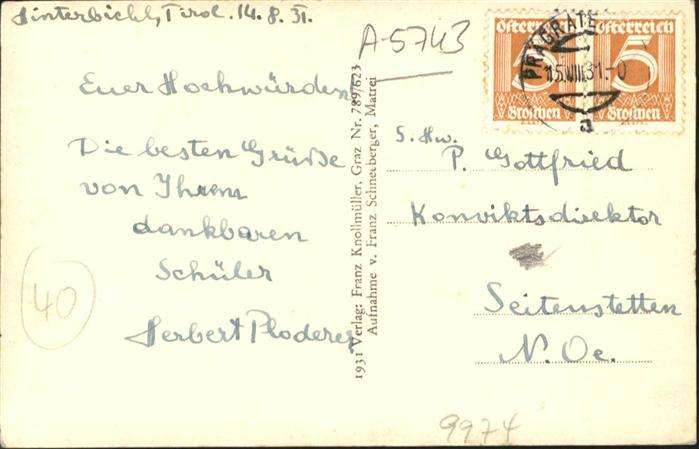 Hinterbichl, Tirol. 14. 8. 31.
Euer Hochwürden
Die besten Grüße
von Ihrem
dankbaren
Schüler
Herbert Ploderer
40
A-5743
1931 Verlag: Franz Knollmüller, Graz Nr. 789/623
Aufnahme v. Franz Schneeberger, Matrei
Österreich
5
Groschen
Österreich
5
Groschen
PRÄGRATEN
15.VIII.31.-0
a
S. Hw.
P. Gottfried
Konviktsdirektor
Seitenstetten
N. Oe.
9974